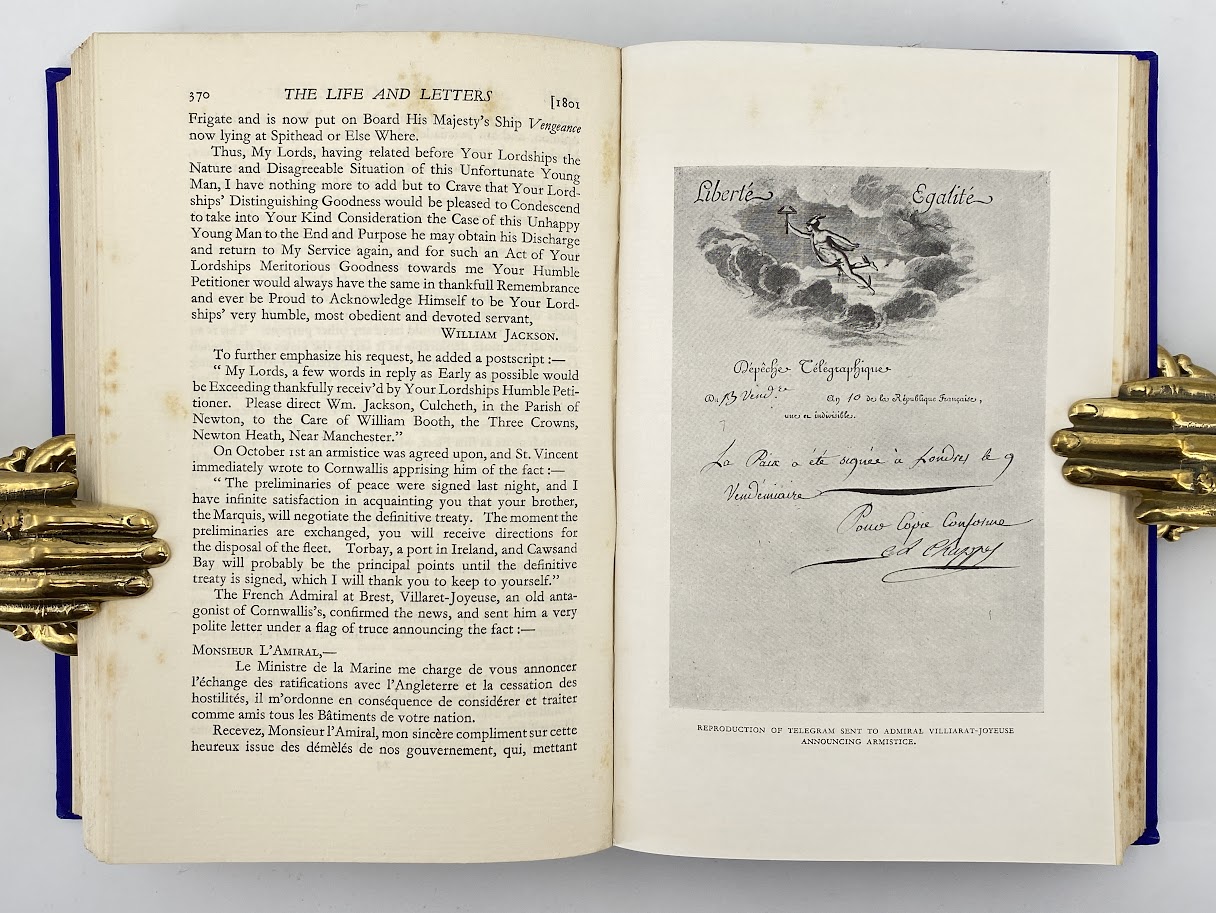 370 THE LIFE AND LETTERS [1801
Frigate and is now put on Board His Majesty's Ship Vengeance
now lying at Spithead or Else Where.
Thus, My Lords, having related before Your Lordships the
Nature and Disagreeable Situation of this Unfortunate Young
Man, I have nothing more to add but to Crave that Your Lord-
ships' Distinguishing Goodness would be pleased to Condescend
to take into Your Kind Consideration the Case of this Unhappy
Young Man to the End and Purpose he may obtain his Discharge
and return to My Service again, and for such an Act of Your
Lordships Meritorious Goodness towards me Your Humble
Petitioner would always have the same in thankfull Remembrance
and ever be Proud to Acknowledge Himself to be Your Lord-
ships' very humble, most obedient and devoted servant,
WILLIAM JACKSON.
To further emphasize his request, he added a postscript :—
" My Lords, a few words in reply as Early as possible would
be Exceeding thankfully receiv'd by Your Lordships Humble Peti-
tioner. Please direct Wm. Jackson, Culcheth, in the Parish of
Newton, to the Care of William Booth, the Three Crowns,
Newton Heath, Near Manchester."
On October 1st an armistice was agreed upon, and St. Vincent
immediately wrote to Cornwallis apprising him of the fact :—
" The preliminaries of peace were signed last night, and I
have infinite satisfaction in acquainting you that your brother,
the Marquis, will negotiate the definitive treaty. The moment the
preliminaries are exchanged, you will receive directions for
the disposal of the fleet. Torbay, a port in Ireland, and Cawsand
Bay will probably be the principal points until the definitive
treaty is signed, which I will thank you to keep to yourself."
The French Admiral at Brest, Villaret-Joyeuse, an old anta-
gonist of Cornwallis's, confirmed the news, and sent him a very
polite letter under a flag of truce announcing the fact :—
MONSIEUR L'AMIRAL,—
Le Ministre de la Marine me charge de vous annoncer
l'échange des ratifications avec l'Angleterre et la cessation des
hostilités, il m'ordonne en conséquence de considérer et traiter
comme amis tous les Bâtiments de votre nation.
Recevez, Monsieur l'Amiral, mon sincère compliment sur cette
heureux issue des démêlés de nos gouvernement, qui, mettant
Liberté Egalité
Dépêche Télégraphique
Du 13 Vend.re An 10 de la République Française,
une et indivisible.
La Paix a été signée à Londres le 9
Vendémiaire
Pour Copie Conforme
Chappe
REPRODUCTION OF TELEGRAM SENT TO ADMIRAL VILLIARAT-JOYEUSE
ANNOUNCING ARMISTICE.